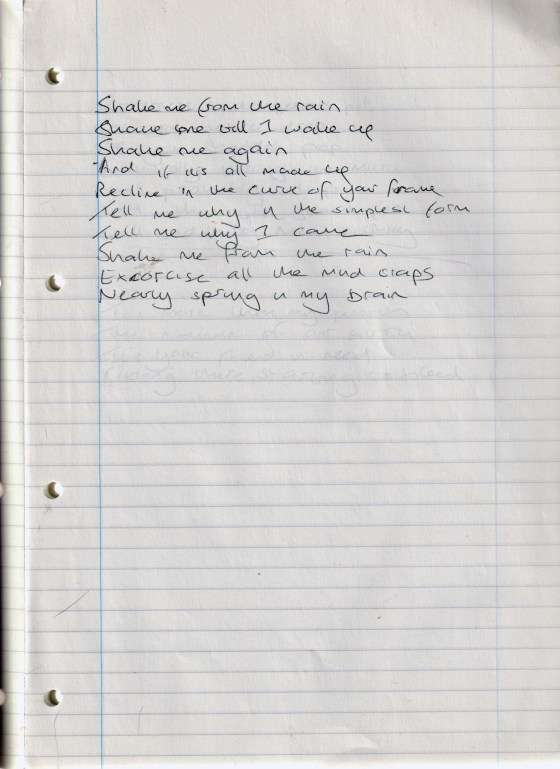 Shake me from the rain
Shake me till I wake up
Shake me again
And if it's all made up
Recline in the curve of your frame
Tell me why in the simplest form
Tell me why I came
Shake me from the rain
Exorcise all the mud craps
Nearly spring in my brain